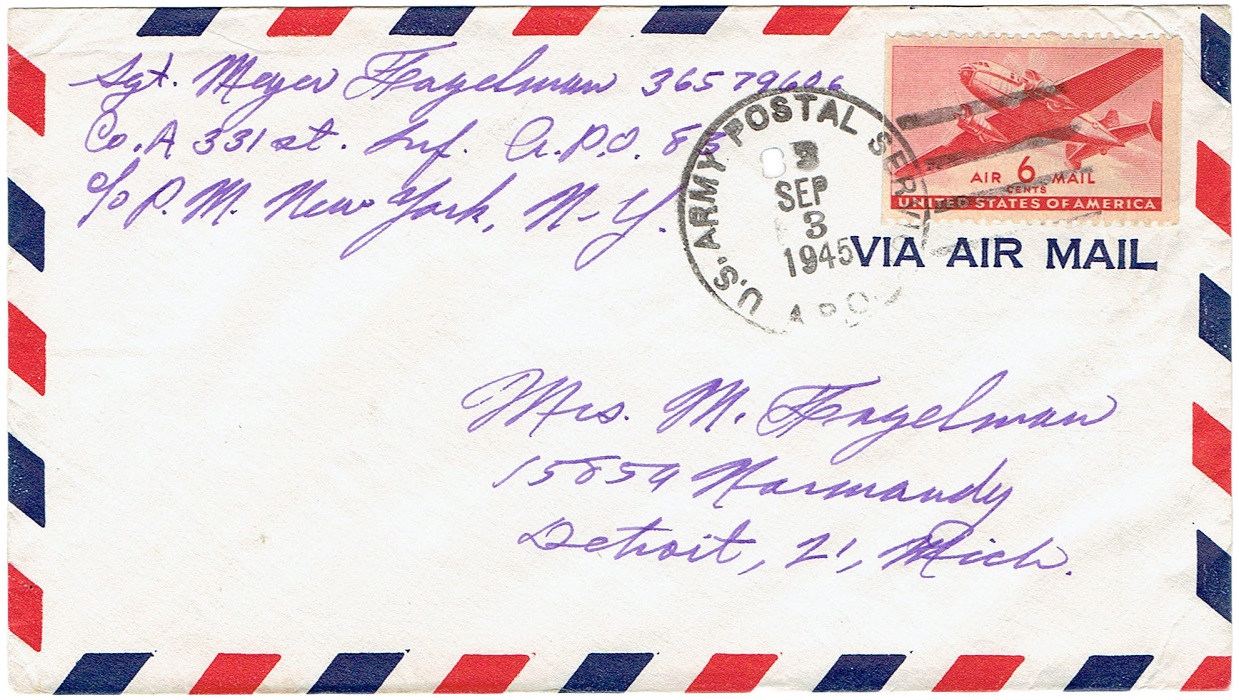 Sgt. Meyer Fagelman 36579606
Co. A 331 st. Inf. A.P.O. 83
c/o P.M. New York, N-Y.
U.S. ARMY POSTAL SERVICE
SEP
3
1945
A.P.O.
AIR 6 MAIL
CENTS
UNITED STATES OF AMERICA
VIA AIR MAIL
Mrs. M. Fagelman
15854 Normandy
Detroit, 21, Mich.